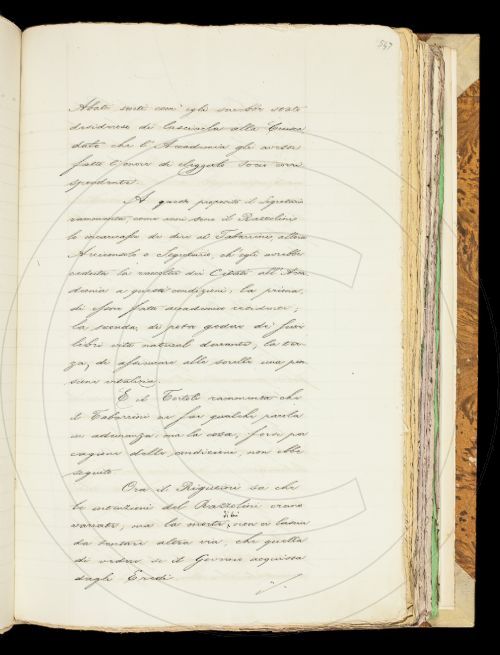 547
Abate certo com' egli sarebbe stato
desideroso di lasciarla alla Crusca
dato che l'Accademia gli avesse
fatto l'onore di eleggerlo socio corri
spondente.
A questo proposito il Segretario
rammenta, come anni sono il Razzolini
lo incaricasse di dire al Tabarrini, allora
Arciconsolo e Segretario, ch' egli avrebbe
ceduta la raccolta dei Citati all'Acca
demia a queste condizioni: la prima,
di esser fatto accademico residente;
la seconda, di poter godere de' suoi
libri vita natural durante; la ter
za, di assicurare alle sorelle una pen
sione vitalizia.
E il Tortoli rammenta che
il Tabarrini ne fece qualche parola
in adunanza, ma la cosa, forse per
cagione delle condizioni, non ebbe
seguito.
Ora il Rigutini sa che
le intenzioni del Razzolini erano
variate, ma la morte di lui, non ci lascia
da tentare altra via, che quella
di vedere se il Governo acquistasse
dagli Eredi